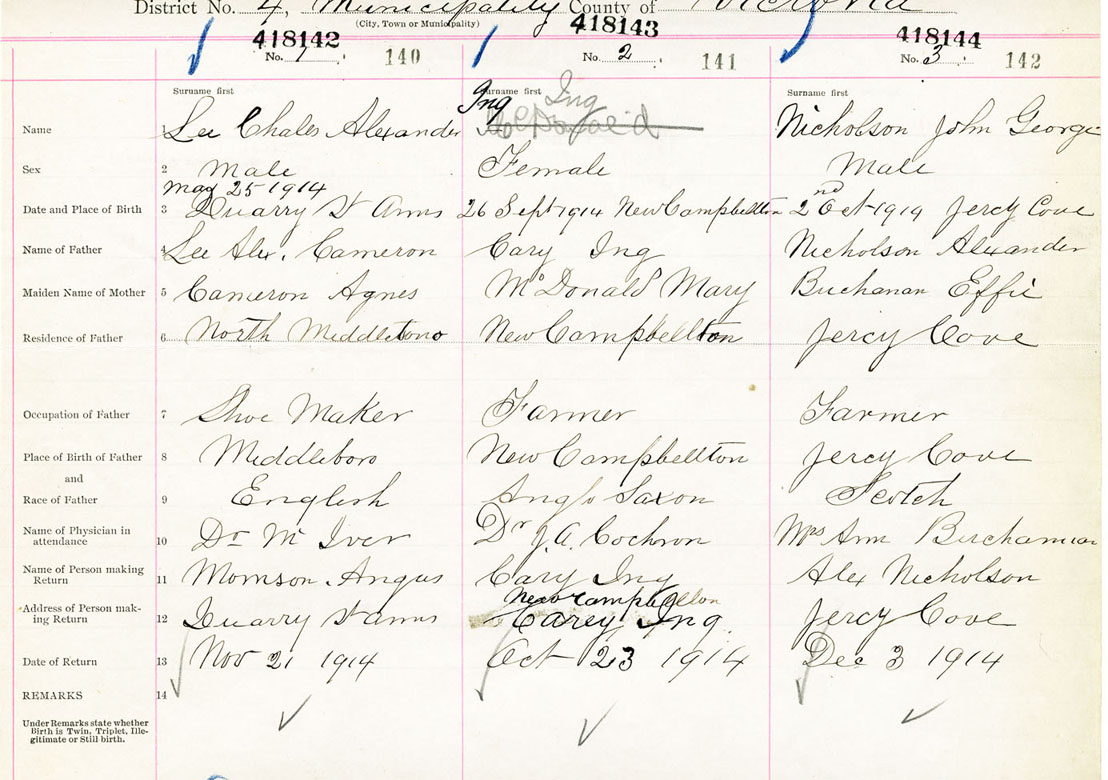 District No. 4, Municipality County of Victoria
(City, Town or Municipality)
418142 418143 418144
No. 1 140 No. 2 141 No. 3 142
Surname first Surname first Surname first
Ing Ing
Name 1 Lee Chales Alexander McDonald Nicholson John George
Sex 2 Male Female Male
May 25 1914
Date and Place of Birth 3 Quarry St Anns 26 Sept 1914 New Campbellton 2nd Oct 1914 Jercy Cove
Name of Father 4 Lee Alex. Cameron Cary Ing Nicholson Alexander
Maiden Name of Mother 5 Cameron Agnes McDonald Mary Buchanan Effie
Residence of Father 6 North Middleboro New Campbellton Jercy Cove
Occupation of Father 7 Shoe Maker Farmer Farmer
Place of Birth of Father 8 Middleboro New Campbellton Jercy Cove
and
Race of Father 9 English Anglo Saxon Scotch
Name of Physician in
attendance 10 Dr Mc Iver Dr J. A. Cochron Mrs Ann Buchannan
Name of Person making
Return 11 Morrison Angus Cary Ing Alex Nicholson
New Campbellton
Address of Person mak-
ing Return 12 Quarry St anns Carey Ing Jercy Cove
Date of Return 13 Nov 21 1914 Oct 23 1914 Dec 3 1914
REMARKS 14
Under Remarks state whether
Birth is Twin, Triplet, Ille-
gitimate or Still birth.